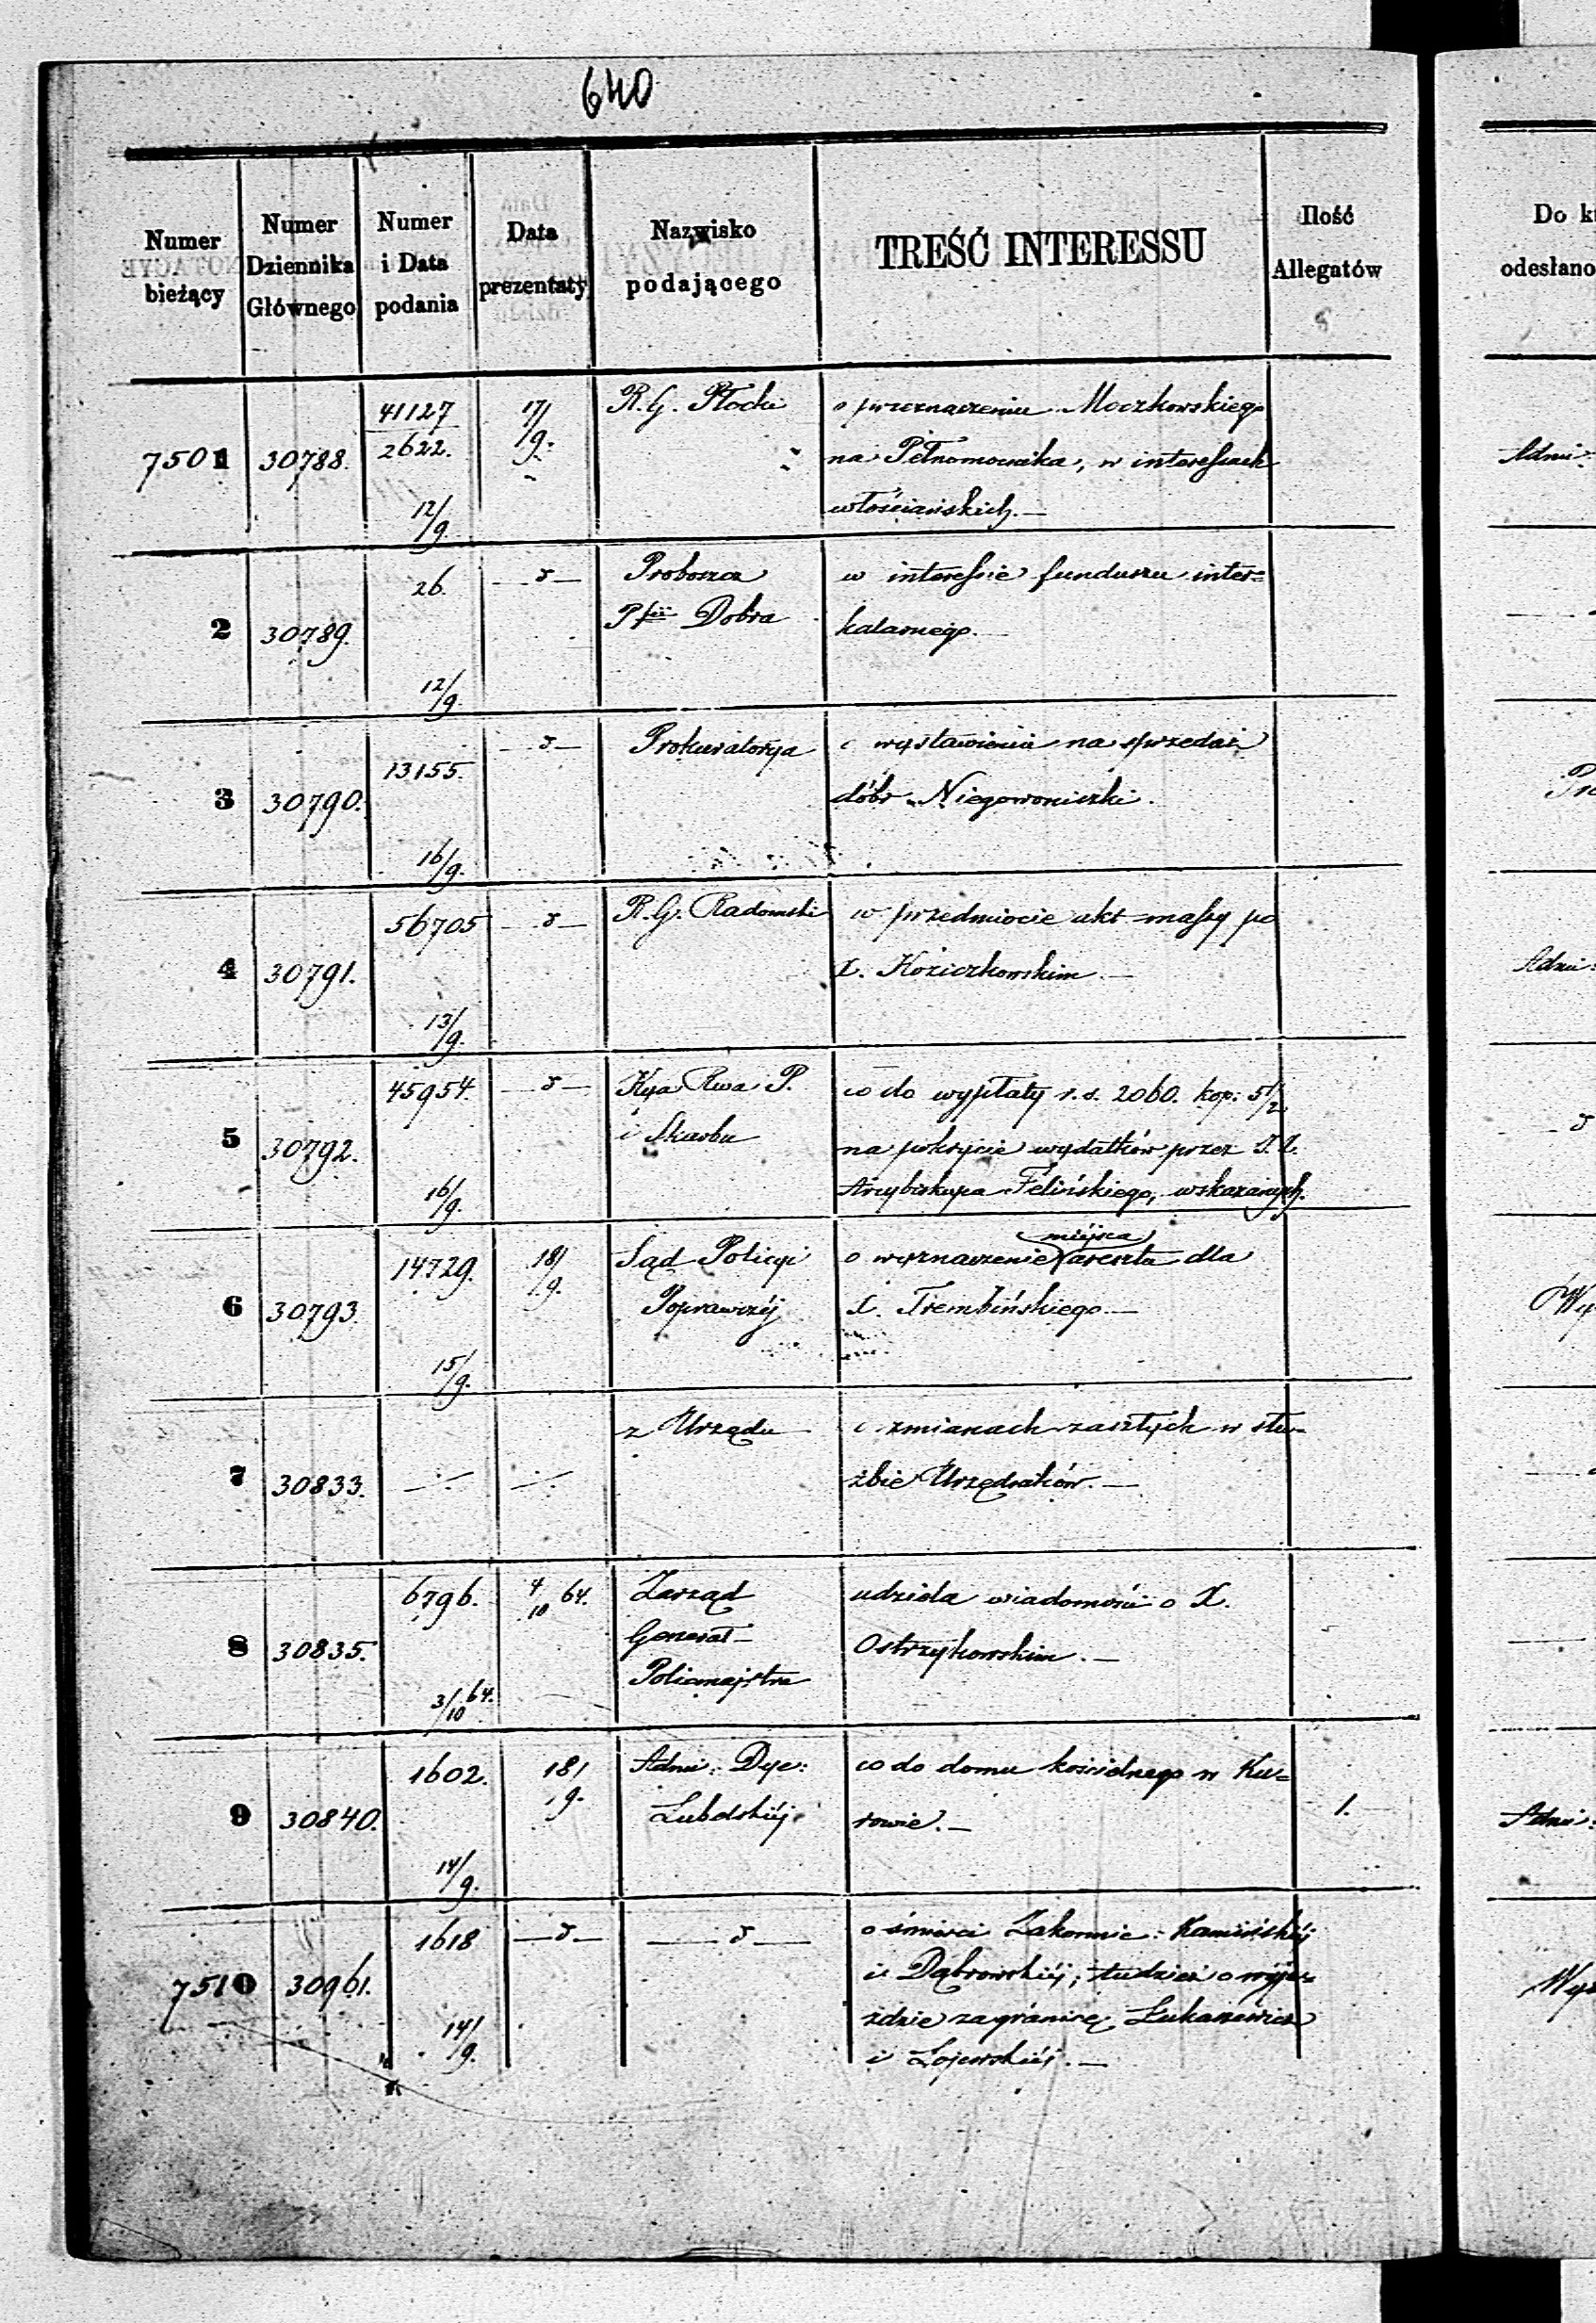 640
Numer bieżący
Numer Dziennika Głównego
Numer i Data podania
Data prezentaty
Nazwisko podającego
TREŚĆ INTERESSU
Ilość Allegatów
Do k
odesłano
7501 30788. 41127 17/9. R. G. Płocki o przeznaczeniu Moczkowskiego
2622. na Pełnomocnika, w interessach Adm:
12/9. włościańskich.—
2 30789. 26. —d— Proboszcz w interessie funduszu inter=
Pfii Dobra kalarnego.—
12/9.
3 30790. 13155. —d— Prokuratorya o wystawieniu na sprzedaż
dóbr Niegowoniczki.
16/9.
4 30791. 56705 —d— R. G. Radomski w przedmiocie akt massy po
X. Koziczkowskim.— Adm:
13/9.
5 30792. 45954. —d— Kya Rwa P. co do wypłaty r. s. 2060. kop: 5 1/2
i Skarbu na pokrycie wydatków przez J. X.
16/9. Arcybiskupa Felińskiego, wskazanych.
6 30793. 14729. 18/9. Sąd Policyi o wyznaczenie miejsca aresztu dla
Poprawczéj X. Trembińskiego.—
15/9.
7 30833. —:— —:— z Urzędu o zmianach zaszłych w słu=
żbie Urzędników.—
8 30835. 6796. 4/10 64. Zarząd udziela wiadomość o X.
Generał— Ostrzykowskim.—
3/10 64. Policmajstra
9 30840. 1602. 18/9. Adm: Dye: co do domu kościelnego w Ku=
Lubelskiéj rowie.— 1. Adm:
14/9.
7510 30961. 1618 —d— —d— o śmierci Zakonnic: Kamińskiéj
i Dąbrowskiéj, tudzież o wyje=
14/9. ździe zagranicę Łukasiewicz
i Łojewskiéj.—